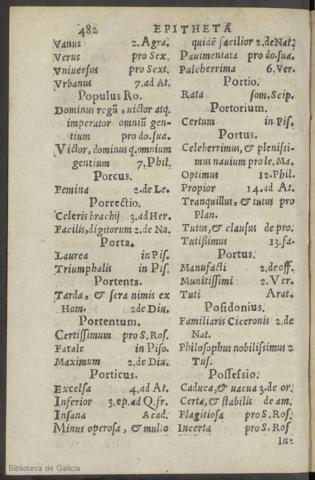 482 EPITHETA
Vanus 2.Agra.
Verus pro Sex.
Vniuersus pro Sext.
Vrbanus 7.ad At.
Populus Ro.
Dominus regũ, victor atq.
imperator omniũ gen-
tium pro do.sua.
Victor, dominus q.omnium
gentium 7.Phil.
Porcus.
Femina 2.de Le.
Porrectio.
Celeris brachij 3.ad Her.
Facilis, digitorum 2.de Na.
Porta.
Laurea in Pis.
Triumphalis in Pis.
Portenta.
Tarda, & sera nimis ex
Hom. 2de Diu.
Portentum.
Certissimum pro S.Ros.
Fatale in Piso.
Maximum 2.de Diu.
Porticus.
Excelsa 4.ad At.
Inferior 3.ep.ad Q.fr.
Insana Acad.
Minus operosa, & multo
quidẽ facilior 2.deNat.
Pauimentata pro do.sua.
Pulcherrima 6.Ver.
Portio.
Rata som.Scip.
Portorium.
Certum in Pis.
Portus.
Celeberrimus, & plenissi-
mus nauium pro le.Ma.
Optimus 12.Phil.
Propior 14.ad At.
Tranquillus, & tutus pro
Plan.
Tutus, & clausus de pro.
Tutissimus 13.fa.
Portus.
Manufacti 2.de off.
Munitissimi 2.Ver.
Tuti Arat.
Posidonius.
Familiaris Ciceronis 2.de
Nat.
Philosophus nobilissimus 2
Tus.
Possessio.
Caduca, & vacua 3.de or.
Certa, & stabilis de am.
Flagitiosa pro S.Ros.
Incerta pro S.Ros
In2
Biblioteca de Galicia